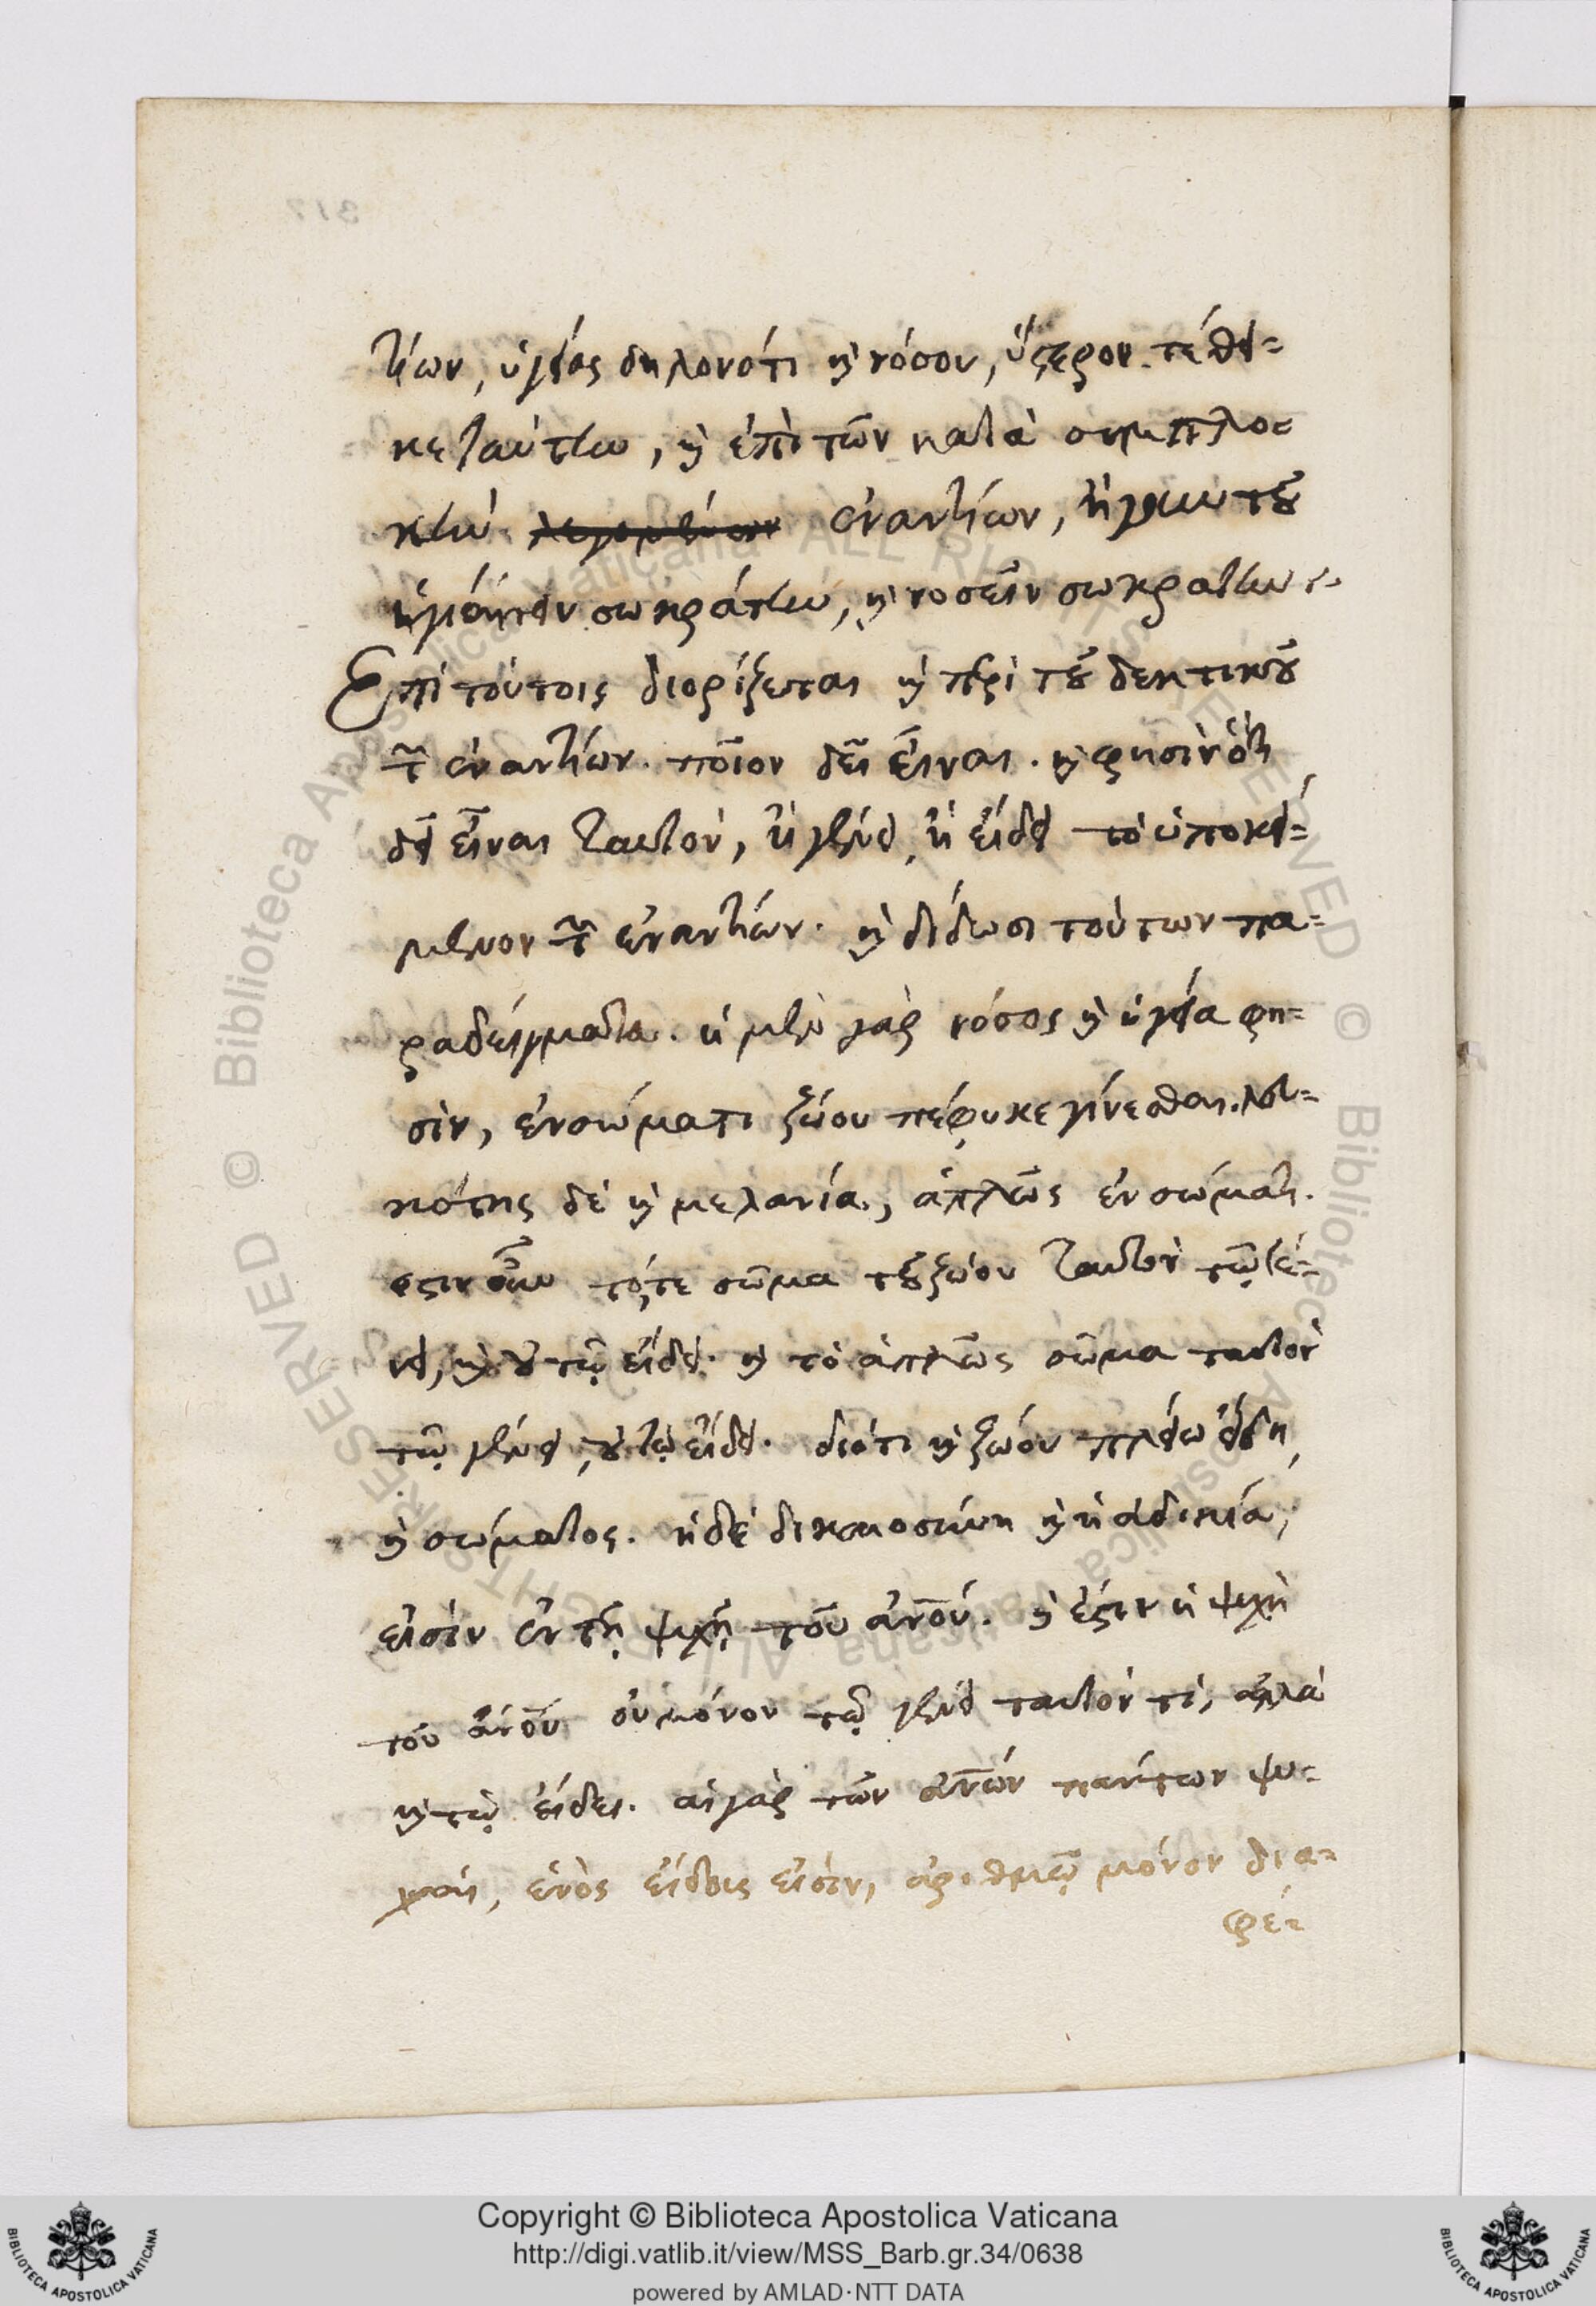 τίων, ὑγείας δηλονότι καὶ νόσου, ὕστερον τέθει=
κε ταύτην, καὶ ἐπὶ τῶν κατὰ συμπλο=
κὴν ἐναντίων, ἤγουν τοῦ
ὑγιαίνειν σωκράτην, καὶ νοσεῖν σωκράτην.
Ἐπὶ τούτοις διορίζεται καὶ περὶ τοῦ δεκτικοῦ
τῶν ἐναντίων. ποῖον δεῖ εἶναι. καὶ φησὶν ὅτι
δεῖ εἶναι ταυτὸν, ἢ γένει, ἢ εἴδει τὸ ὑποκεί=
μενον τῶν ἐναντίων. καὶ δίδωσι τούτων πα=
ραδείγματα. ἡ μὲν γὰρ νόσος καὶ ὑγεία φη=
σὶν, ἐν σώματι ζώου πέφυκε γίνεσθαι. λευ=
κότης δὲ καὶ μελανία, ἁπλῶς ἐν σώματι.
ἐστιν οὖν τό, τε σῶμα τοῦ ζώου ταυτὸν τῷ γέ=
νει, καὶ οὐ τῷ εἴδει. καὶ τὸ ἁπλῶς σῶμα ταυτὸν
τῷ γένει, οὐ τῷ εἴδει. διότι καὶ ζώου πλείω εἴδη,
καὶ σώματος. ἡ δὲ δικαιοσύνη καὶ ἡ ἀδικία,
εἰσὶν ἐν τῇ ψυχῇ τοῦ ἀνου. καὶ ἔστιν ἡ ψυχὴ
τοῦ ἀνου οὐ μόνον τῷ γένει ταυτόν τι, ἀλλὰ
καὶ τῷ εἴδει. αἱ γὰρ τῶν ἀνων πάντων ψυ=
χαὶ, ἑνὸς εἴδους εἰσὶν, ἀριθμῷ μόνον δια=
φέ=
Copyright © Biblioteca Apostolica Vaticana
http://digi.vatlib.it/view/MSS_Barb.gr.34/0638
powered by AMLAD·NTT DATA